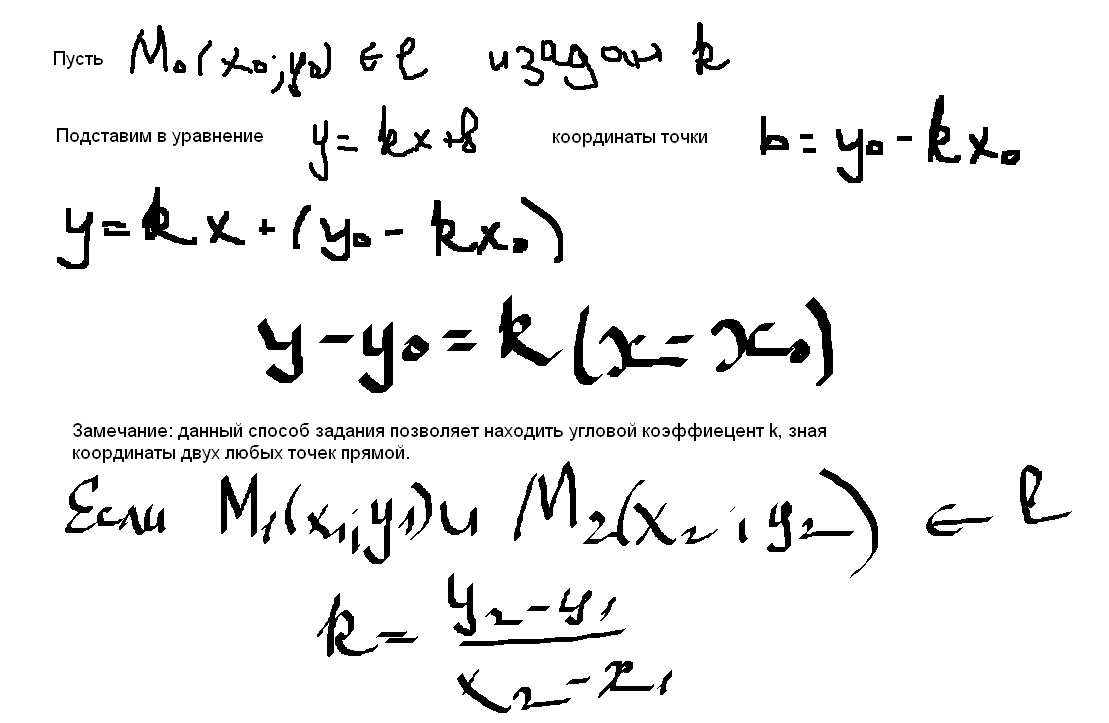 Пусть M₀(x₀; y₀) ∈ l и задан k
Подставим в уравнение y = kx + b координаты точки b = y₀ - kx₀
y = kx + (y₀ - kx₀)
y - y₀ = k(x - x₀)
Замечание: данный способ задания позволяет находить угловой коэффиецент k, зная
координаты двух любых точек прямой.
Если M₁(x₁; y₁) и M₂(x₂; y₂) ∈ l
k = (y₂ - y₁)/(x₂ - x₁)